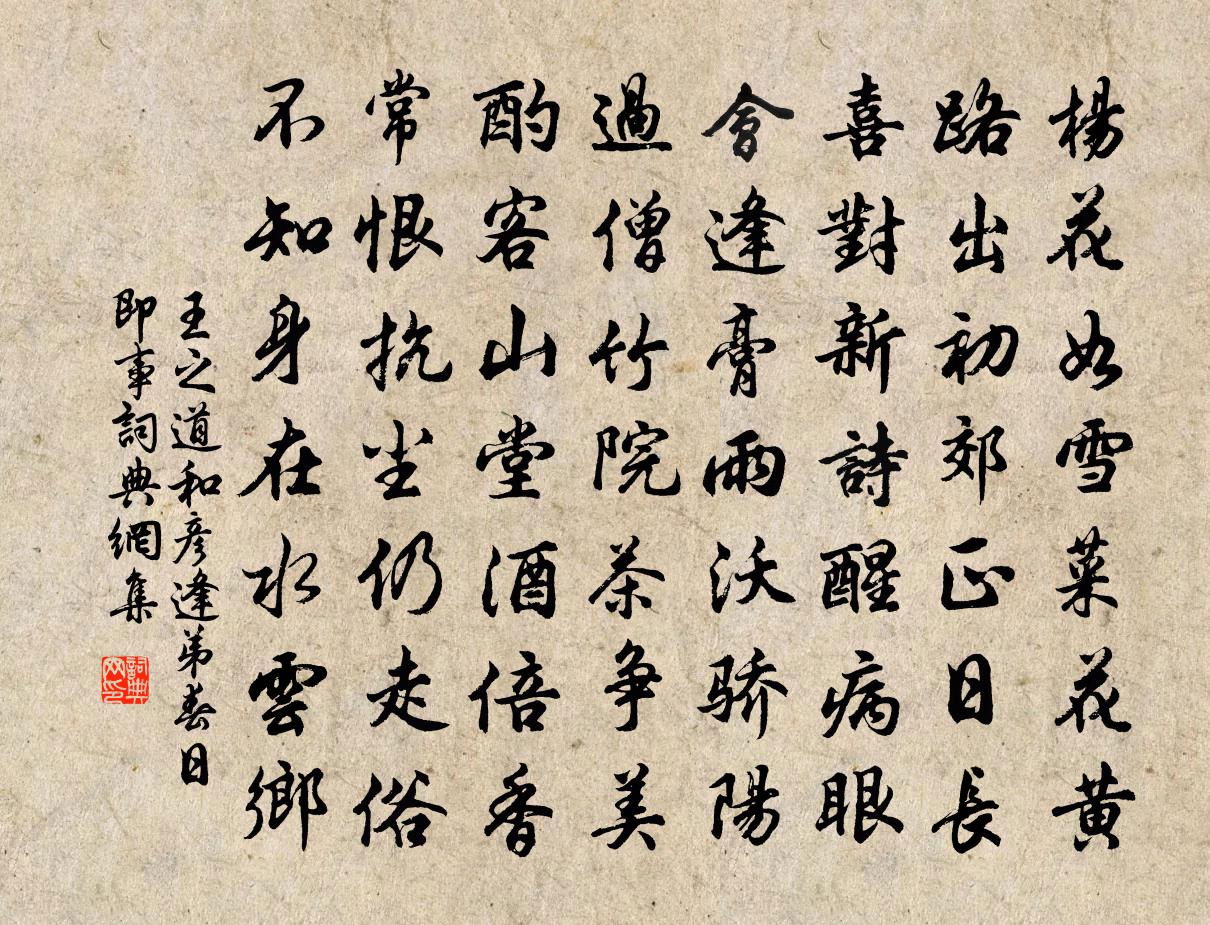 楊花如雪菜花黄
路出初郊正日長
喜對新詩醒病眼
會逢膏雨沃骄陽
過僧竹院茶争美
酌客山堂酒倍香
常恨抗尘仍走俗
不知身在水雲鄉
王之道和彦逢弟春日
即事詞典網集
詞典网印